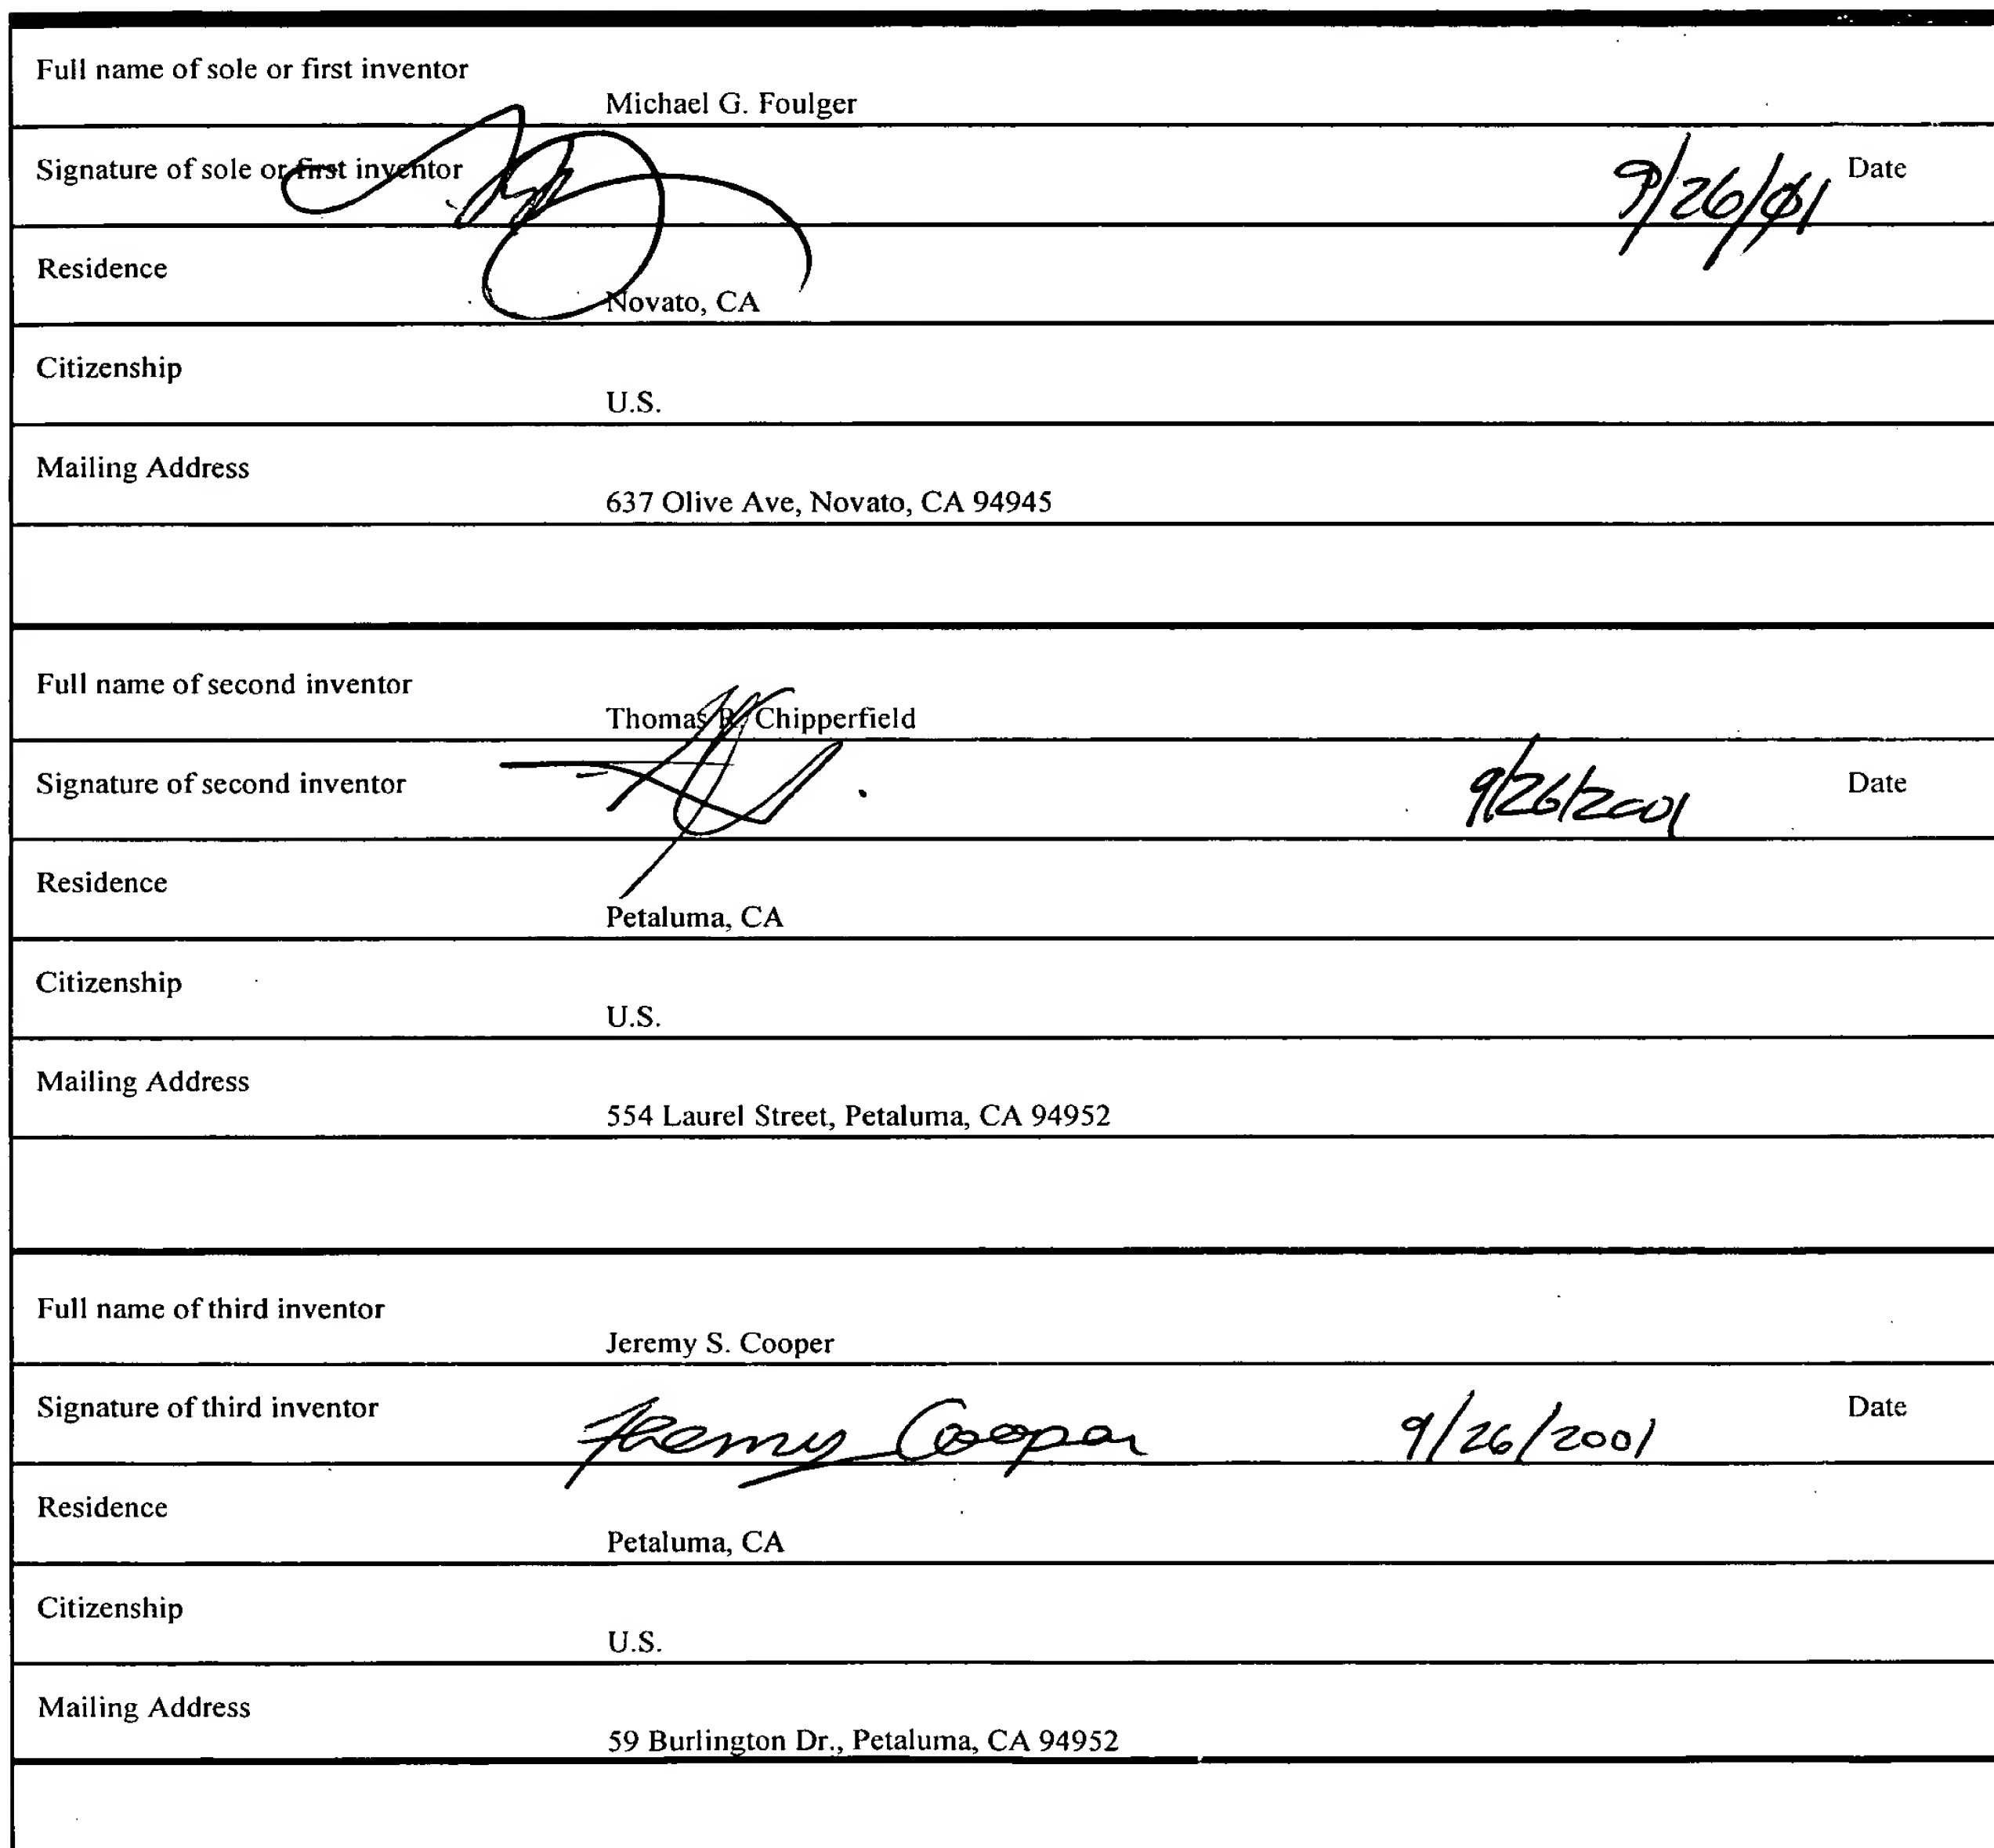 Full name of sole or first inventor
Michael G. Foulger
Signature of sole or first inventor 9/26/01 Date
Residence
Novato, CA
Citizenship
U.S.
Mailing Address
637 Olive Ave, Novato, CA 94945
Full name of second inventor
Thomas R. Chipperfield
Signature of second inventor 9/26/2001 Date
Residence
Petaluma, CA
Citizenship
U.S.
Mailing Address
554 Laurel Street, Petaluma, CA 94952
Full name of third inventor
Jeremy S. Cooper
Signature of third inventor Jeremy Cooper 9/26/2001 Date
Residence
Petaluma, CA
Citizenship
U.S.
Mailing Address
59 Burlington Dr., Petaluma, CA 94952